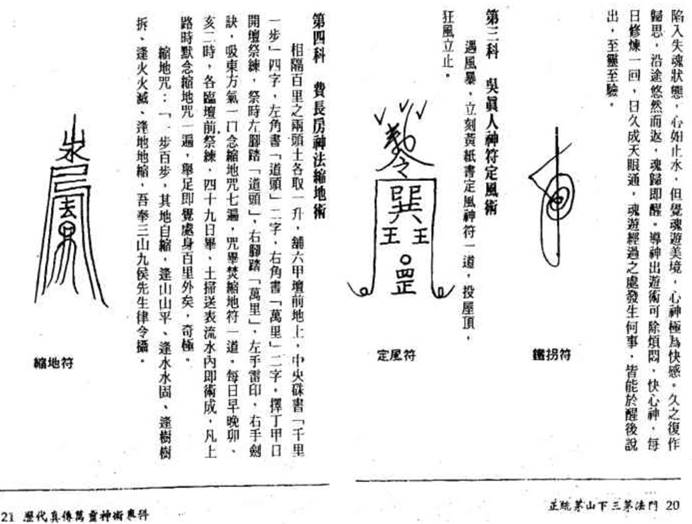 陷入失魂狀態，心如止水，但覺魂遊美境，心神極為快感。久之復作
歸思，沿途悠然而返，魂歸即醒。導神出遊術可除煩悶，快心神，每
日修煉一回，日久成天眼通，魂遊經過之處發生何事，皆能於醒後說
出，至靈至驗。
鐵拐符
第三科　吳眞人神符定風術
遇風暴，立刻黃紙書定風神符一道，投屋頂，
狂風立止。
巽
王 王
罡
定風符
正統茅山下三茅法門 20
第四科　費長房神法縮地術
相隔百里之兩頭土各取一升，舖六甲壇前地上，中央硃書「千里
一步」四字，左角書「道頭」二字，右角書「萬里」二字，擇丁甲日
開壇祭練，祭時左腳踏「道頭」，右腳踏「萬里」，左手雷印，右手劍
訣，吸東方氣一口念縮地咒七遍，咒畢焚縮地符一道。每日早晚卯、
亥二時，各臨壇前祭練，四十九日畢，土掃送表流水內即術成，凡上
路時默念縮地咒一遍，舉足即覺處身百里外矣，奇極。
縮地咒：「一步百步，其地自縮，逢山山平、逢水水固、逢樹樹
拆、逢火火滅、逢地地縮，吾奉三山九侯先生律令攝。
縮地符
21 歷代真傳萬靈神術專科